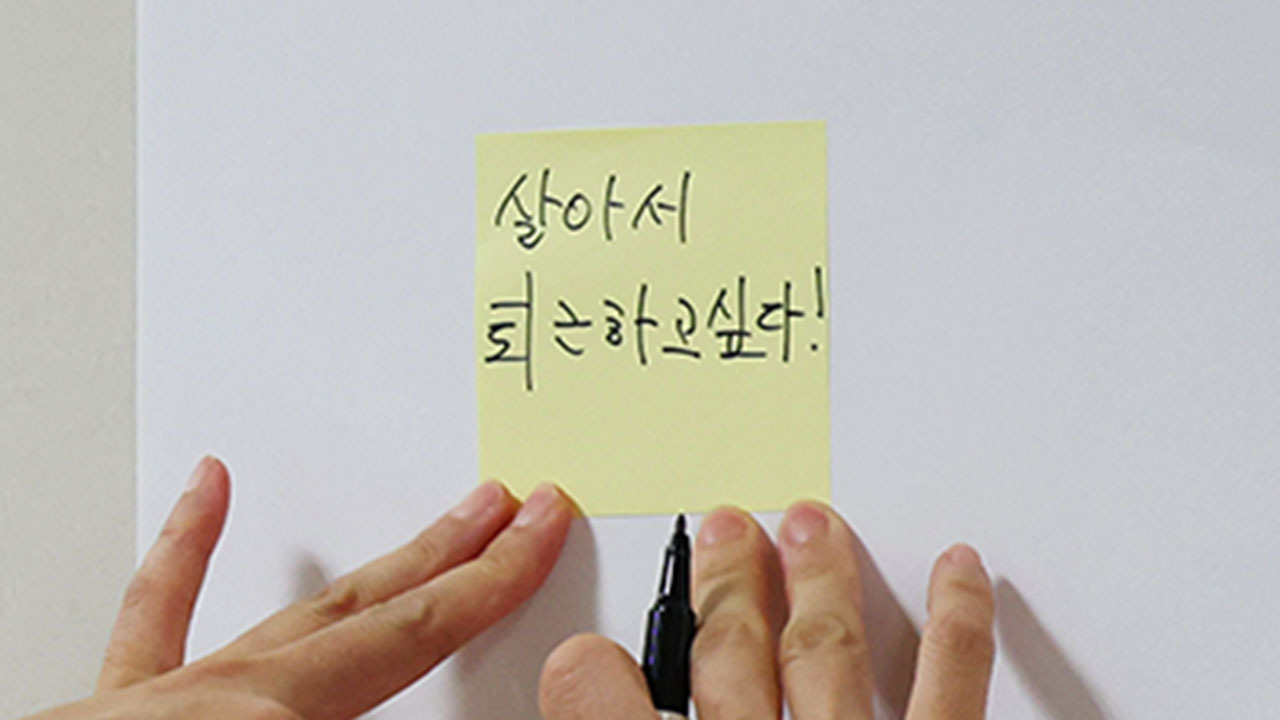 살아서
퇴근하고싶다!